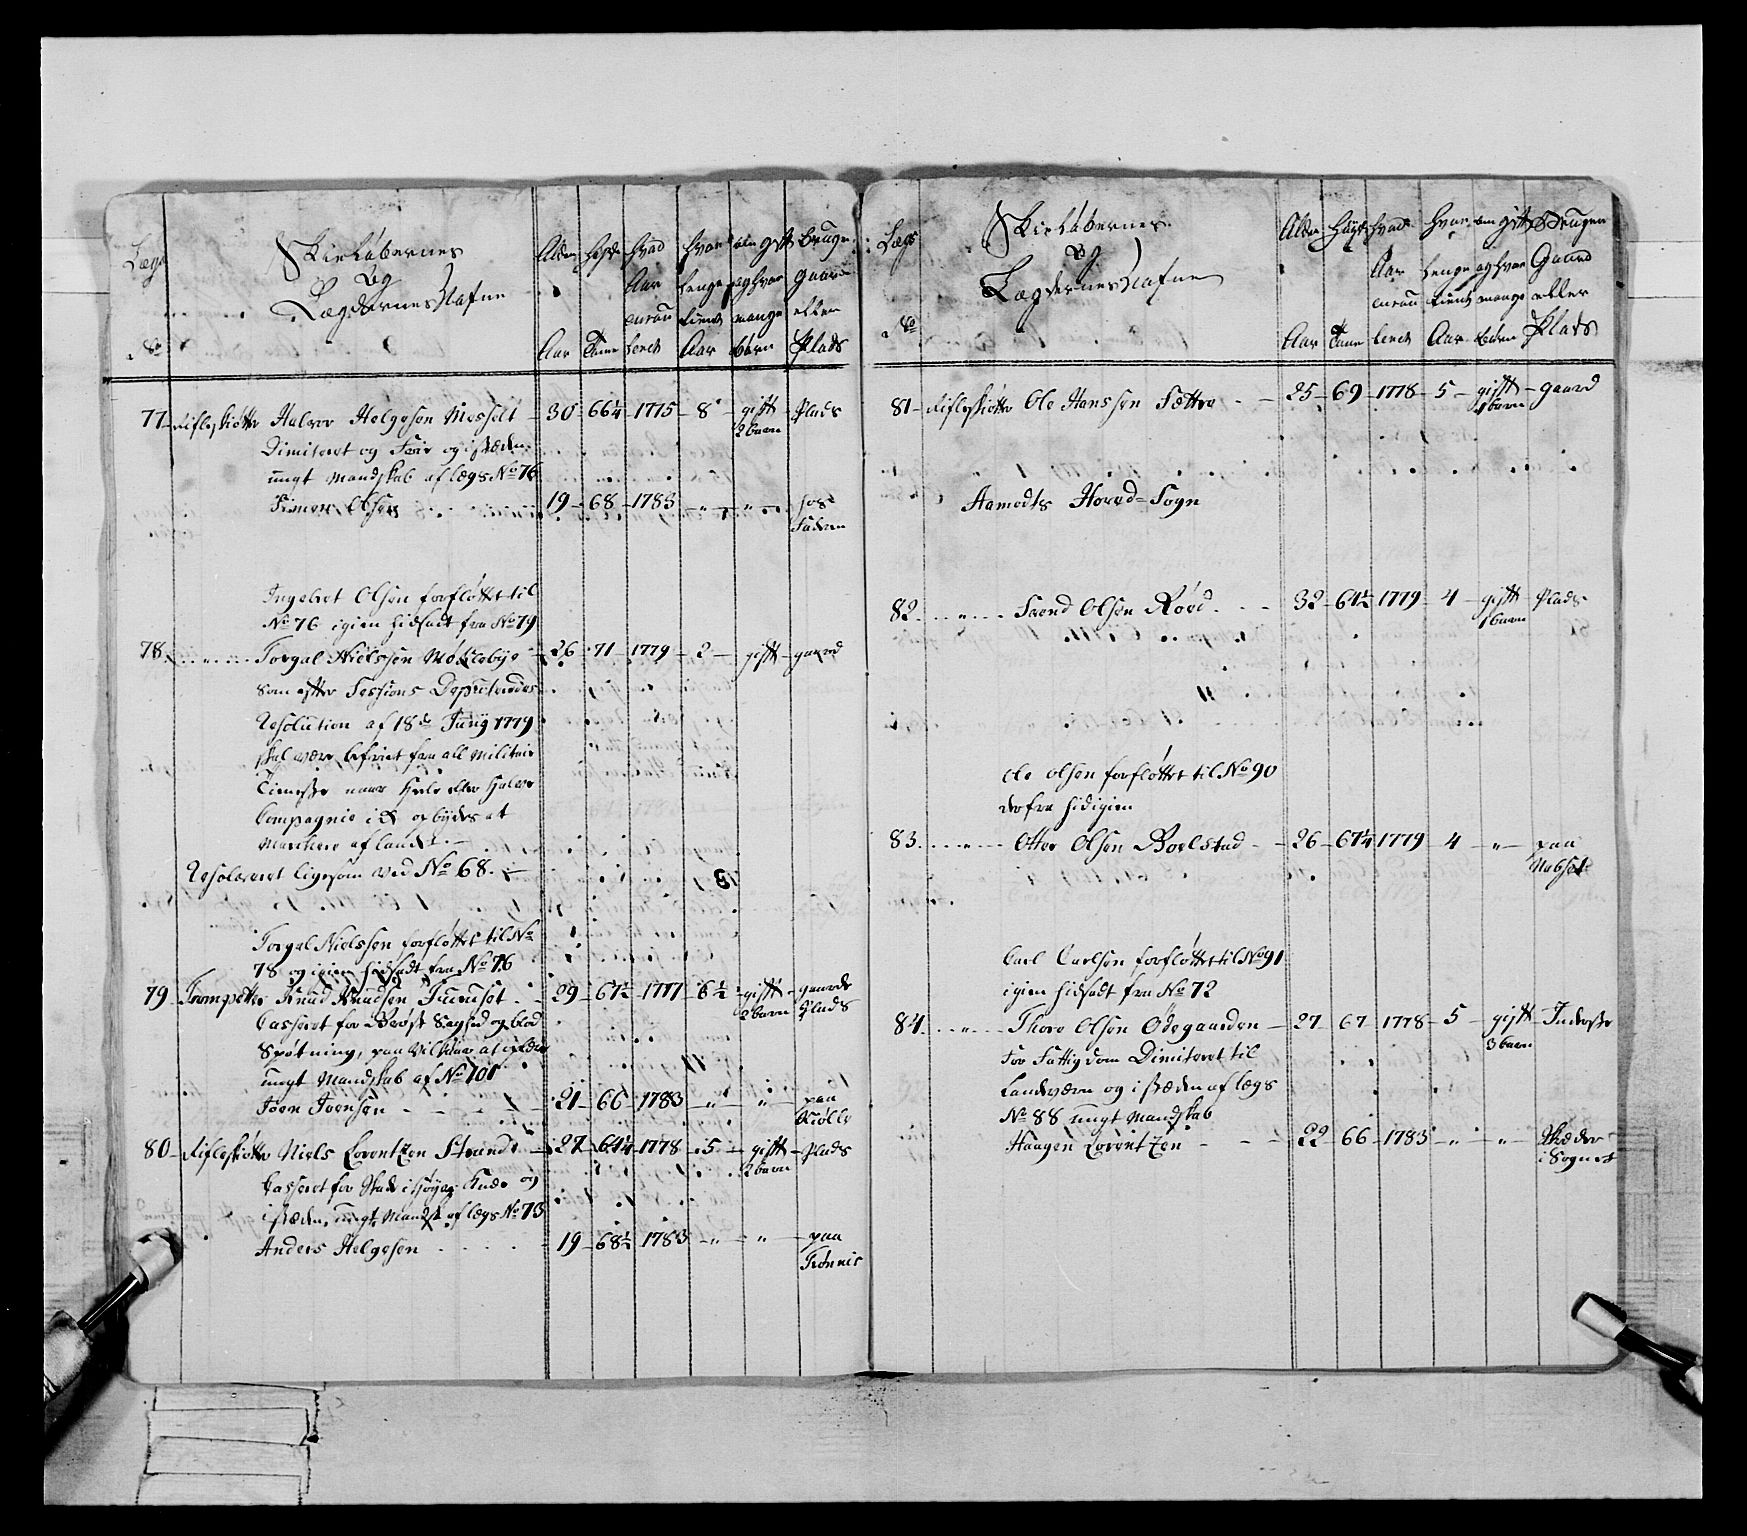 Lægs
No
Skieløbernes
Og
Lægdernes Nafne
Alder
Aar
Høyde
Tomme
Hvad
Aar
enroul
leret
Hvor
lenge
tient
Aar
om gift
og hvor
mange
børn
Bruger
Gaard
eller
Plads
77 Riflesköter Halvor Helgesen Messelt 30 66¼ 1775 8 gift Plads
2 barn
Dimiteret og Före og i stæden
ungt Mandskab af lægs No 76
Simen Olsen 19 68 1783 " " hos
Faderen
Ingebret Olsen forfløttet til
No 76 igien hidsadt fra No 79
78 " Torgal Nielssen Møklebye 26 71 1779 2 gift gaard
som efter Sessions Deputeredes
Resolution af 18de Junÿ 1779
skal være befriet fra all Militair
Tieneste naar Heele eller Halve
Compagnie i &c opbÿdes at
Marchere af landet
Resolveret ligesom ved No 68.
Torgal Nielssen forfløttet til No
78 og igien hidsadt fra No 76
79 Trompetter Knud Knudsen Furuset 29 67½ 1777 6½ gift gaard
2 barn Plads
Casseret for Brøst Sagud og blod
Spøtning, paa Vilkaar at
ungt Mandskab af No 101
Joen Joensen 21 66 1783 " " paa
Kiølle
80 Riflesköter Niels Lorentzen Strand 27 64¼ 1778 5 gift Plads
2 barn
Casseret for Skade i høyre Knæe og
i stæden ungt Mandsk af lægs No 73
Anders Helgesen 19 68½ 1783 " " paa
Trønnes
Lægs
No
Skieløbernes
Og
Lægdernes Nafne
Alder
Aar
Høyde
Tomme
Hvad
Aar
enroul
leret
Hvor
lenge
tient
Aar
om gift
og hvor
mange
börn
Bruger
Gaard
eller
Plads
81 Riflesköter Ole Hanssen Sættre 25 69 1778 5 gift gaard
1 barn
Aamodts Hoved-Sogn
82 " Svend Olsen Röed 32 64½ 1779 4 gift Plads
1 barn
Ole Olsen forfløttet til No 90
derfra hid igien
83 " Otter Olsen Boelstad 26 67¼ 1779 4 " paa
Nabset
Carl Carlsen forfløttet til No 91
igien hidsadt fra No 72
84 " Thore Olsen Ödegaarden 27 67 1778 5 gift Inderste
3 barn
For Fattigdom Dimiteret til
Landværn og i stæden af lægs
No 88 ungt Mandskab
Haagen Lorentzen 22 66 1783 " " Skæder
i Sognet